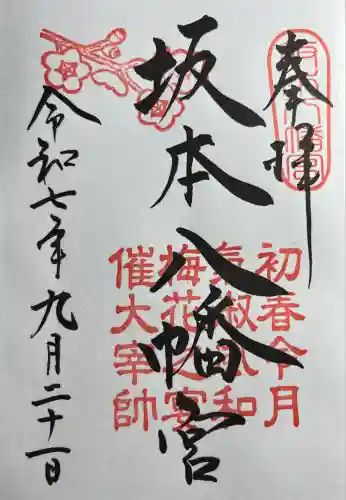 奉拝
坂本八幡宮
令和七年九月二十一日
初春令月
氣淑風和
梅花之宴
催大宰帥